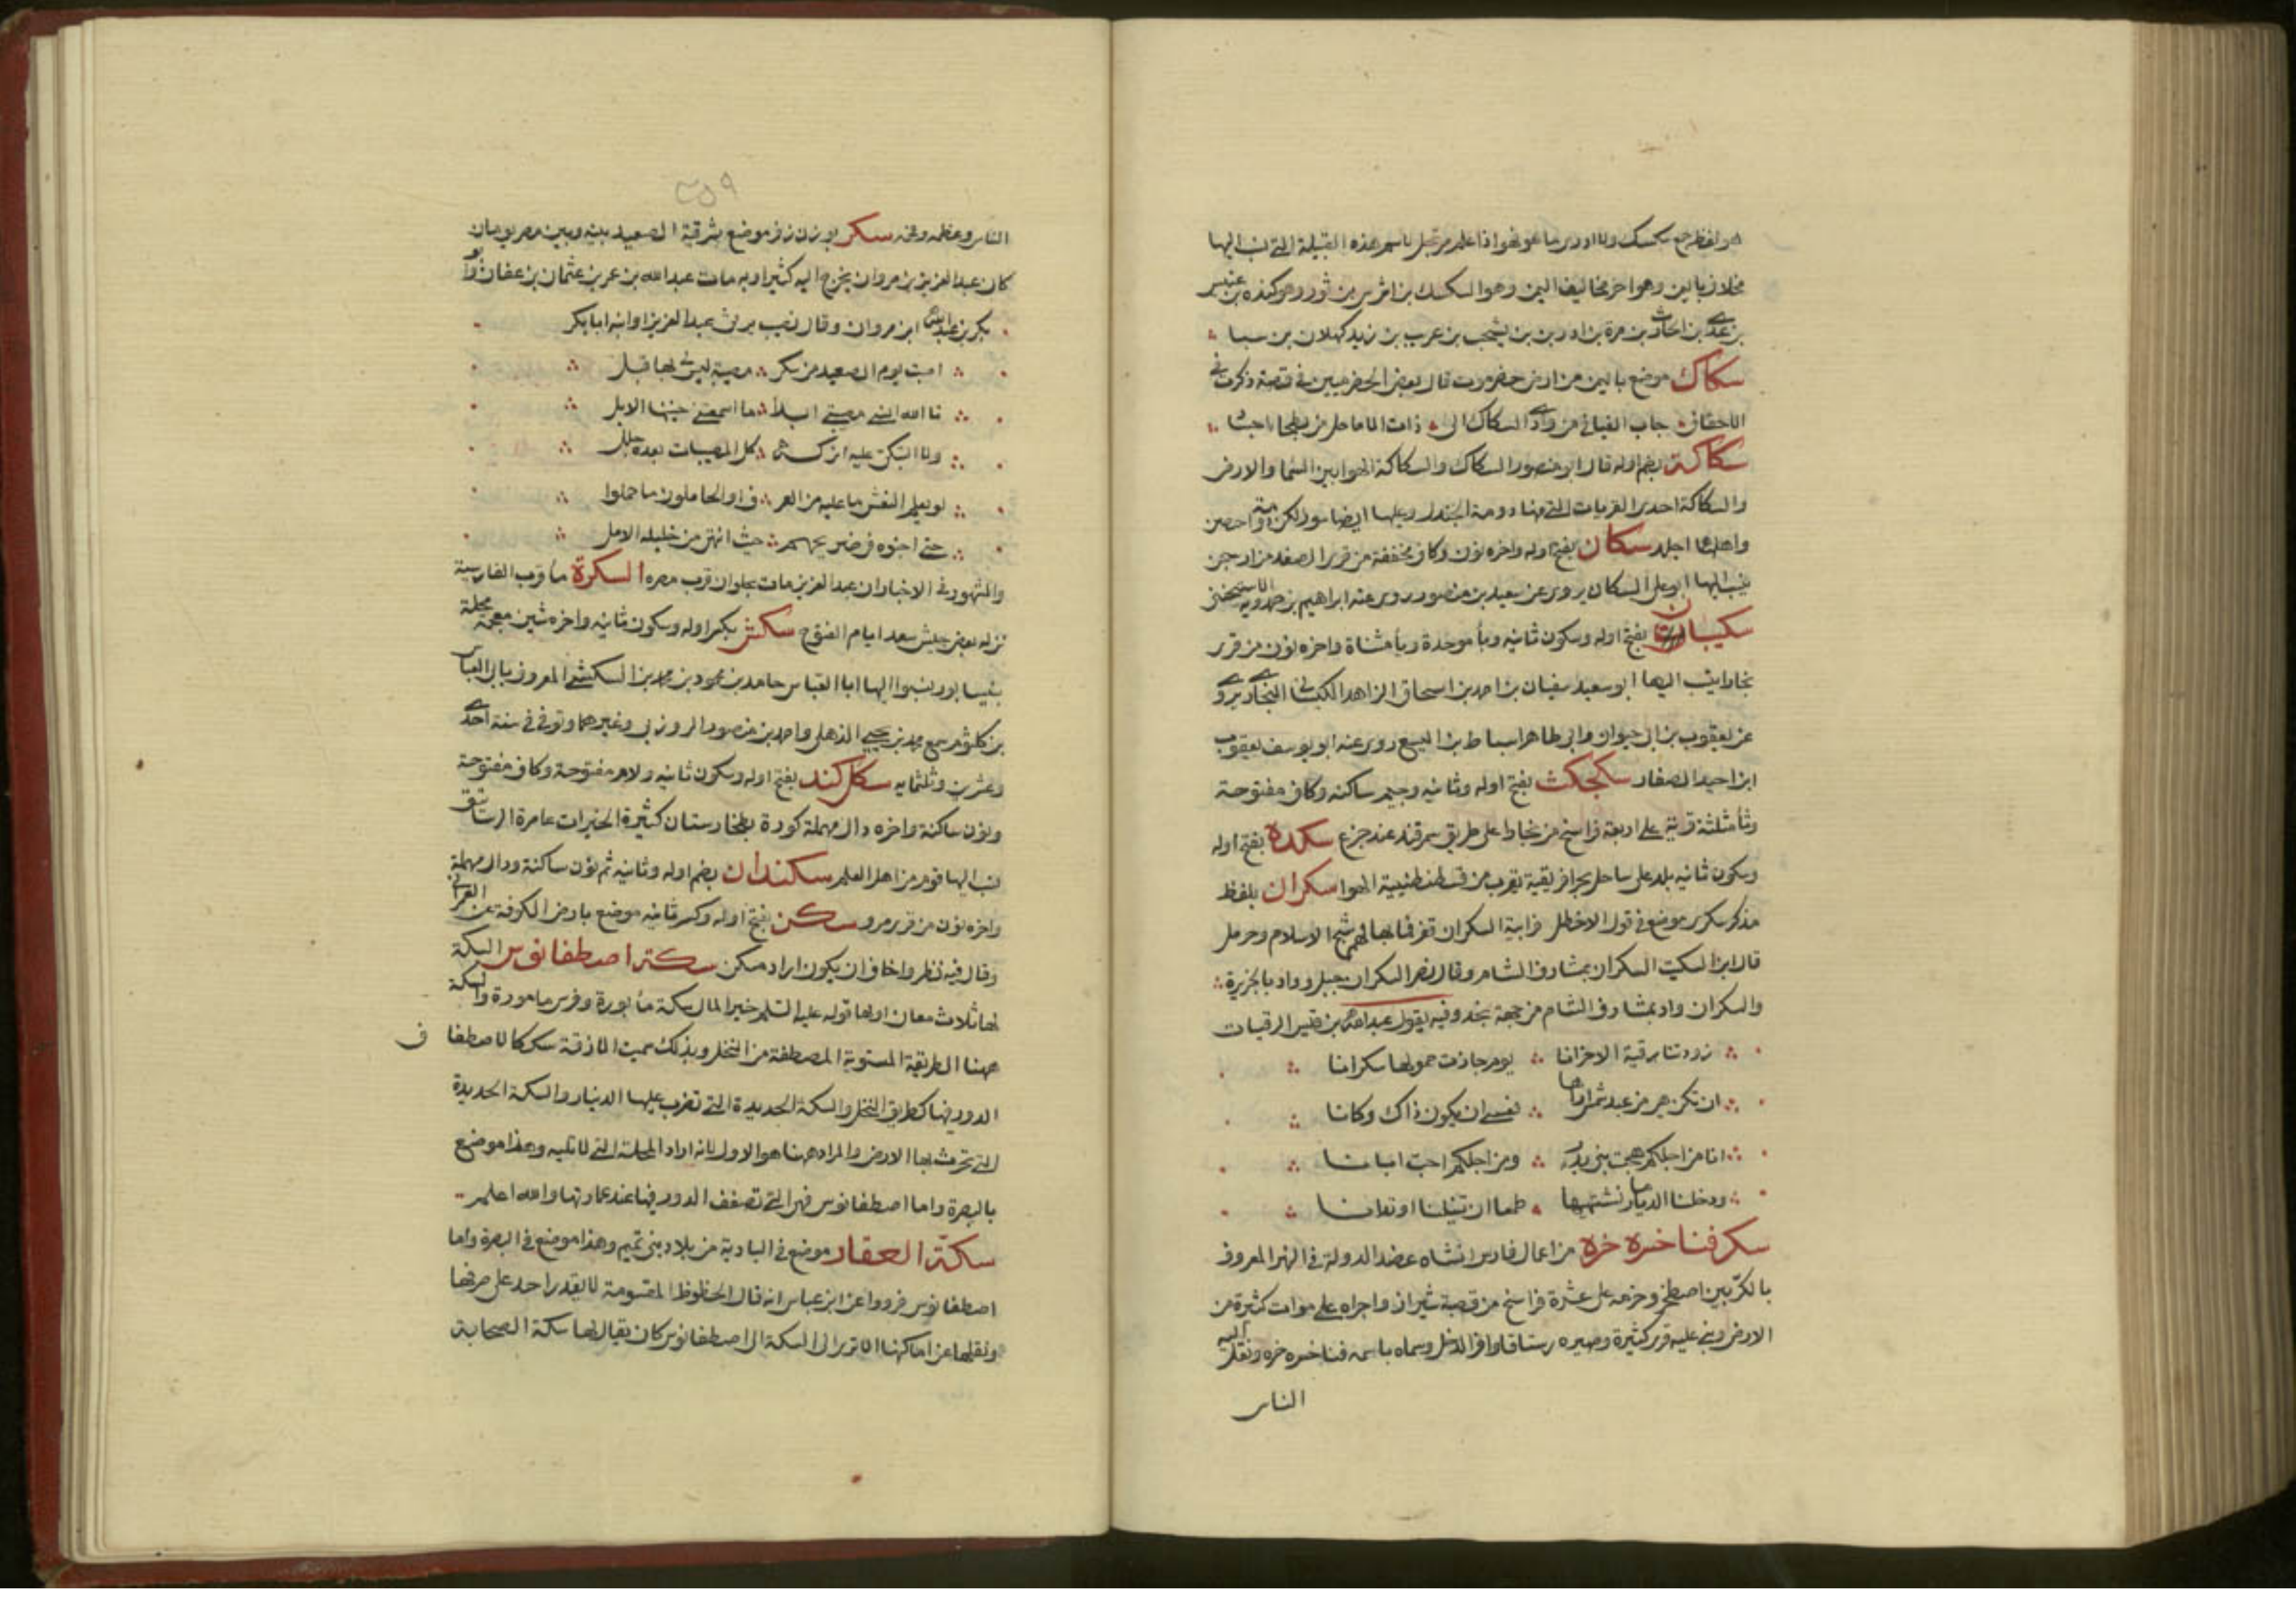 هو لفظ جمع سكسك ولا ادرى ما هو فهو اذا علم مرتجل باسم هذه القبيلة التى نسب اليها
مخلاف باليمن وهو اخر مخاليف اليمن وهو السكسك بن اشرس بن ثور وهو كنده بن عفير
بن عدى بن الحارث بن مرة بن ادد بن بن يشجب بن عريب بن زيد كهلان بن سبا
سكاك موضع باليمن من ارض حضرموت قال بعض الحضرميين فى قصة ذكرت فى
الاحقاف جاب الفيافى من وادى السكاك الى ذات الاماحل من بطحا اجيا
سكاكة بضم اوله قال ابو منصور السكاك والسكاكة الهوا بين السما والارض
والسكاكة احدى القريات التى منها دومة الجندل وعليها ايضا سور لكن دومة احصن
واهلها اجلد سكان بفتح اوله واخره نون وكاف مخففة من قرى الصغد من ارجن
ينسب اليها ابو على السكانى يروى عن سعيد بن منصور روى عنه ابراهيم بن حمدويه الاستيخنى
سكبيان بفتح اوله وسكون ثانيه وبا موحدة ويا مثناة واخره نون من قرى
بخارا ينسب اليها ابو سعيد سفيان بن احمد بن اسحاق الزاهد السكبيانى البخارى يروى
عن يعقوب بن ابى حيوان وابى طاهر اسباط بن اليسع روى عنه ابو يوسف يعقوب
ابن احيد الصفار سكجكث بفتح اوله وثانيه وجيم ساكنه وكاف مفتوحة
وثا مثلثة قرية على اربعة فراسخ من بخارا على طريق سمرقند عند جزغ سكدة بفتح اوله
وسكون ثانيه بلد على ساحل بحر افريقية بقرب من قسطنطينية الهوا سكران بلفظ
مذكر سكرى موضع فى قول الاخطل فرابية السكران قفر فما بها لهم شبح الا سلام وحرمل
قال ابن السكيت السكران بمشارف الشام وقال نصر السكران جبل وواد بالجزيرة
والسكران واد بمشارف الشام من جهة نجد وفيه يقول عبيدالله بن قيس الرقيات
زودتنا رقية الاحزانا يوم جازت حمولها سكرانا
ان تكن هى من عبد شمس اراها فعسى ان يكون ذاك وكانا
انا من اجلكم هجرت بنى بدر ومن اجلكم احب ابانا
ودخلنا الديار ما نشتهيها طمعا ان تنيلنا او تدانا
سكر فناخسره خره من اعمال فارس انشاه عضد الدولة فى النهر المعروف
بالكر بين اصطخر وخرمه على عشرة فراسخ من قصبة شيراز واجراه على موات كثيرة من
الارض وبنى عليه قرى كثيرة وصيره رستاقا وافر الدخل وسماه باسمه فناخسره خره ونقل اليه
الناس
٢٥٩
الناس وعظمه وفخمه سكر بوزن زفر موضع بشرقية الصعيد بينه وبين مصر يومان
كان عبد العزيز بن مروان يخرج اليه كثيرا وبه مات عبد الله بن عمر بن عثمان بن عفان وابو
بكر بن عبد الله ابن مروان وقال نصيب يرثى عبد العزيز او ابنه ابا بكر
اصبت يوم الصعيد من سكر مصيبة ليس لى بها قبل
تالله انسى مصيبتى ابدا ما اسمعتنى حنينها الابل
ولا التبكى عليه ان كثرت كل المصيبات بعده جلل
لو يعلم النعش ما عليه من العرف او الحاملون ما حملوا
حتى اجنوه فى ضريحهم حيث انتهى من خليلك الامل
والمشهور فى الاخبار ان عبد العزيز مات بحلوان قرب مصر السكرة ما قرب القادسية
نزله بعض جيش سعد ايام الفتوح سكش بكسر اوله وسكون ثانيه واخره شين معجمة محلة
بنيسابور ينسبوا اليها ابا العباس حامد بن محمود بن محمد بن السكشى المعروف بابى العباس
بن كلثوم سمع محمد بن يحيى الذهلى واحمد بن منصور المروزى وغيرهما وتوفى فى سنة احدى
وعشرين وثلثمايه سكلكند بفتح اوله وسكون ثانيه ولام مفتوحة وكاف مفتوحة
ونون ساكنة واخره دال مهملة كورة بطخارستان كثيرة الخيرات عامرة الرستاق
نسب اليها قوم من اهل العلم سكندان بضم اوله وثانيه ثم نون ساكنة ودال مهملة
واخره نون من قرى مرو سكن بفتح اوله وكسر ثانيه موضع بارض الكوفة عن العمرانى
وقال فيه نظر واخاف ان يكون اراد مسكن سكة اصطفانوس السكة
لها ثلاث معان اولها قوله عليه السلم خير المال سكة مأبورة وفرس مامورة والسكة
ههنا الطريقة المستوية المصطفة من النخل وبذلك سميت الازقة سككا لاصطفا ف
الدور فيها كطريق النخل والسكة الحديدة التى تضرب عليها الدنيار والسكة الحديدة
التى تحرث بها الارض والمراد ههنا هو الاول لانه اراد المحلة التى لا تليه وهذا موضع
بالبصرة واما اصطفانوس فهى التى تصفف الدور فيها عند عمارتها والله اعلم
سكة العقار موضع فى البادية من بلاد بنى تميم وهذا موضع فى البصرة واما
اصطفانوس فرووا عن ابن عباس انه قال الحظوظ المقسومة لا يقدر احد على صرفها
ونقلها عن اماكنها الا ترى الى السكة الى اصطفانوس كان يقال لها سكة الصحابة